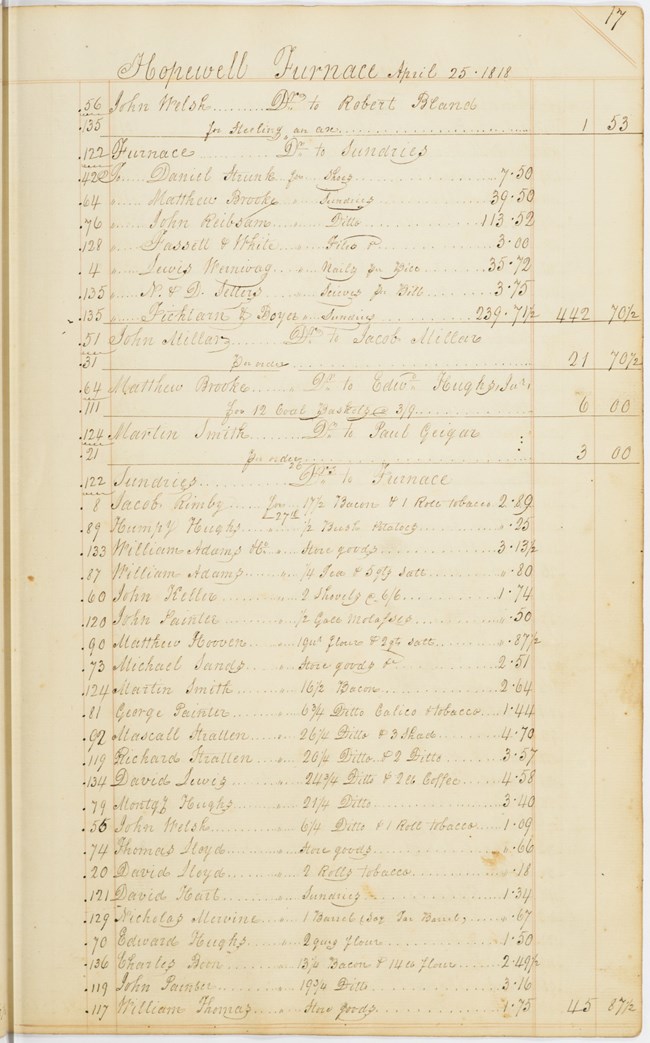 17
Hopewell Furnace April 25. 1818
.56 John Welsh ........ Dr. to Robert Bland
.135 for Sterling an axe ........ 1 53
.122 Furnace ........ Dr. to Sundries
.42 To Daniel Strunk for Shoes ........ 7.50
.64 " Matthew Brooke " Sundries ........ 39.50
.76 " John Reibsam " Ditto ........ 113.52
.128 " Fassell & White " Files & ........ 3.00
.4 " Lewis Wernwag " Nails per Bill ........ 35.72
.135 " N. & D. Jetters " Seieves per Bill ........ 3.75
.135 " Fichthorn & Boyer " Sundries ........ 239.71½ 442 70½
.51 John Millard ........ Dr. to Jacob Millar
.31 per order ........ 21 70½
.64 Matthew Brooke ........ Dr. to Edwd. Hughs Junr.
.111 for 12 Coal Baskets @ 3/9 ........ 6 00
.124 Martin Smith ........ Dr. to Paul Geigar
.21 per order ........ 3 00
.122 Sundries ........ Drs. to Furnace
. 8 Jacob Rimby ...... for 17½ Bacon & 1 Roll tobacco 2.89
27th
.89 Humpy Hughs ...... " ½ Bush Potatoes ........ ".25
.133 William Adams " Store goods ........ 3.13½
.87 William Adams ...... " ¼ Tea & 5 qts Salt ........ ".80
.60 John Keller ...... " 2 Shovels @ 6/6 ........ 1.74
.120 John Painter ...... " ½ Gall Molasses ........ ".50
.90 Matthew Hooven " 1 qur flour & 2 qts Salt ........ ".87½
.73 Michael Sands ...... " Store goods & ........ 2.51
.124 Martin Smith ...... " 16½ Bacon ........ 2.64
.81 George Painter ...... " 6¾ Ditto Calico & tobacco ..... 1.44
.92 Mascall Strallen ...... " 26¼ Ditto & 3 Shad ........ 4.70
.119 Richard Strallen ...... " 20¼ Ditto & 2 Ditto ........ 3.57
.134 David Lewis ...... " 24¾ Ditto & 2 lb Coffee ........ 4.58
.79 Montgy Hughs ...... " 21¼ Ditto ........ 3.40
.56 John Welsh ...... " 6¼ Ditto & 1 Roll tobacco ...... 1.09
.74 Thomas Lloyd ...... " Store goods ........ ".66
.20 David Lloyd ...... " 2 Rolls tobacco ........ ".18
.121 David Hart ...... " Sundries ........ 1.34
.129 Nicholas Mervine ... " 1 Barrel Tar Barrel, ........ ".67
.70 Edward Hughs ...... " 2 qurs flour ........ 1.50
.136 Charles Boon ...... " 13¼ Bacon & 14 lb flour ........ 2.49½
.119 John Painter ...... " 19¾ Ditto ........ 3.16
.117 William Thomas ...... " Store goods ........ 1.75 45 87½